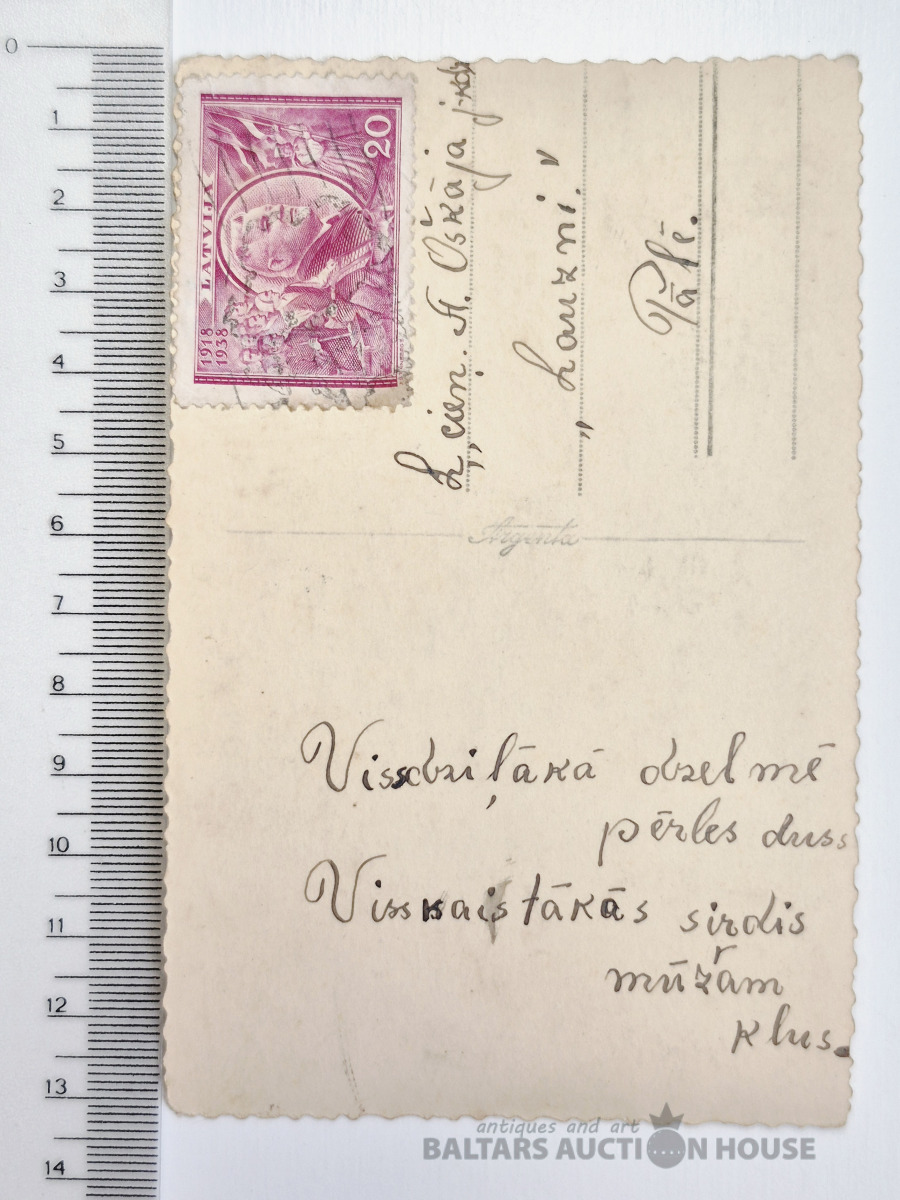 0
1
2
3
4
5
6
7
8
9
10
11
12
13
14
LATVIJA
20
1918
1938
Ļ, cien. A. Oškāja j-kdz
„Lauzni."
Pālē.
Argenta
Vissdziļākā dzelmē
pērles duss
Visskaistākās sirdis
mūžam
klus.
antiques and art
BALTARS AUCTION HOUSE